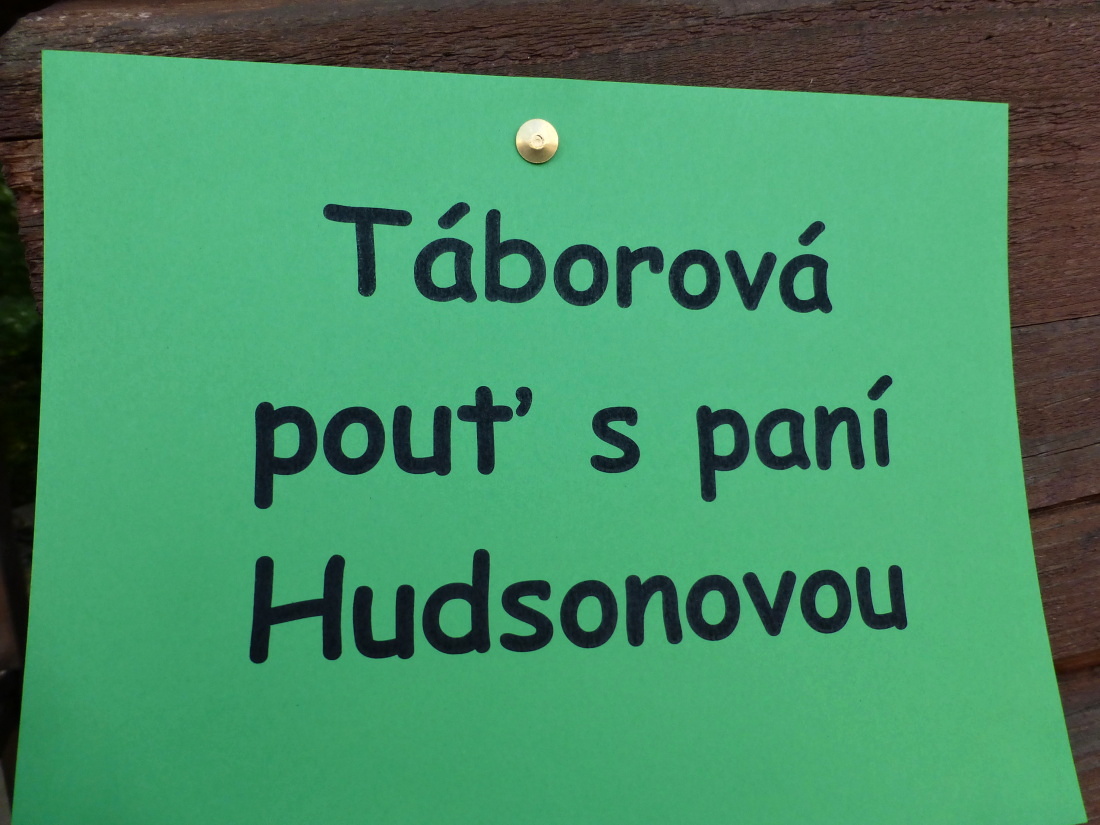 Táborová
pouť s paní
Hudsonovou